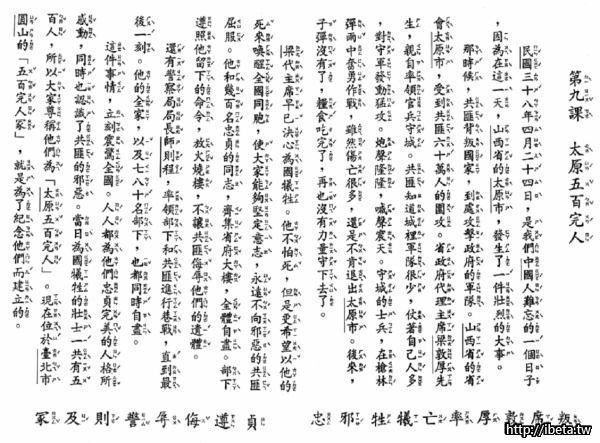 第九課　太原五百完人
民國三十八年四月二十四日，是我們中國人難忘的一個日子
，因為在這一天，山西省的太原市，發生了一件壯烈的大事。
那時候，共匪背叛國家，到處攻擊政府的軍隊。山西省的省
會太原市，受到共匪六十萬人的圍攻。省政府代理主席梁敦厚先
生，親自率領官兵守城。共匪知道城裡軍隊很少，仗著自己人多
，對守軍發動猛攻。炮聲隆隆，喊聲震天。守城的士兵，在槍林
彈雨中奮勇作戰，雖然傷亡很多，還是不肯退出太原市。後來，
子彈沒有了，糧食吃完了，再也沒有力量守下去了。
梁代主席早已決心為國犧牲。他不怕死，但是更希望以他的
死來喚醒全國同胞，使大家能夠堅定意志，永遠不向邪惡的共匪
屈服。他和幾百名忠貞的同志，齊集省府大樓，全體自盡。部下
遵照他留下的命令，放火燒樓，不讓共匪侮辱他們的遺體。
還有警察局局長師則程，率領部下和共匪進行巷戰，直到最
後一刻。他的全家，以及七八十名部下，也都同時自盡。
這件事情，立刻震驚全國。人人都為他們忠貞完美的人格所
感動，同時也認識了共匪的邪惡。當日為國犧牲的壯士一共有五
百人，所以大家尊稱他們為「太原五百完人」。現在位於臺北市
圓山的「五百完人冢」，就是為了紀念他們而建立的。
叛席敦厚率亡犧牲邪忠
貞遵侮辱警則及冢
http://ibeta.tw